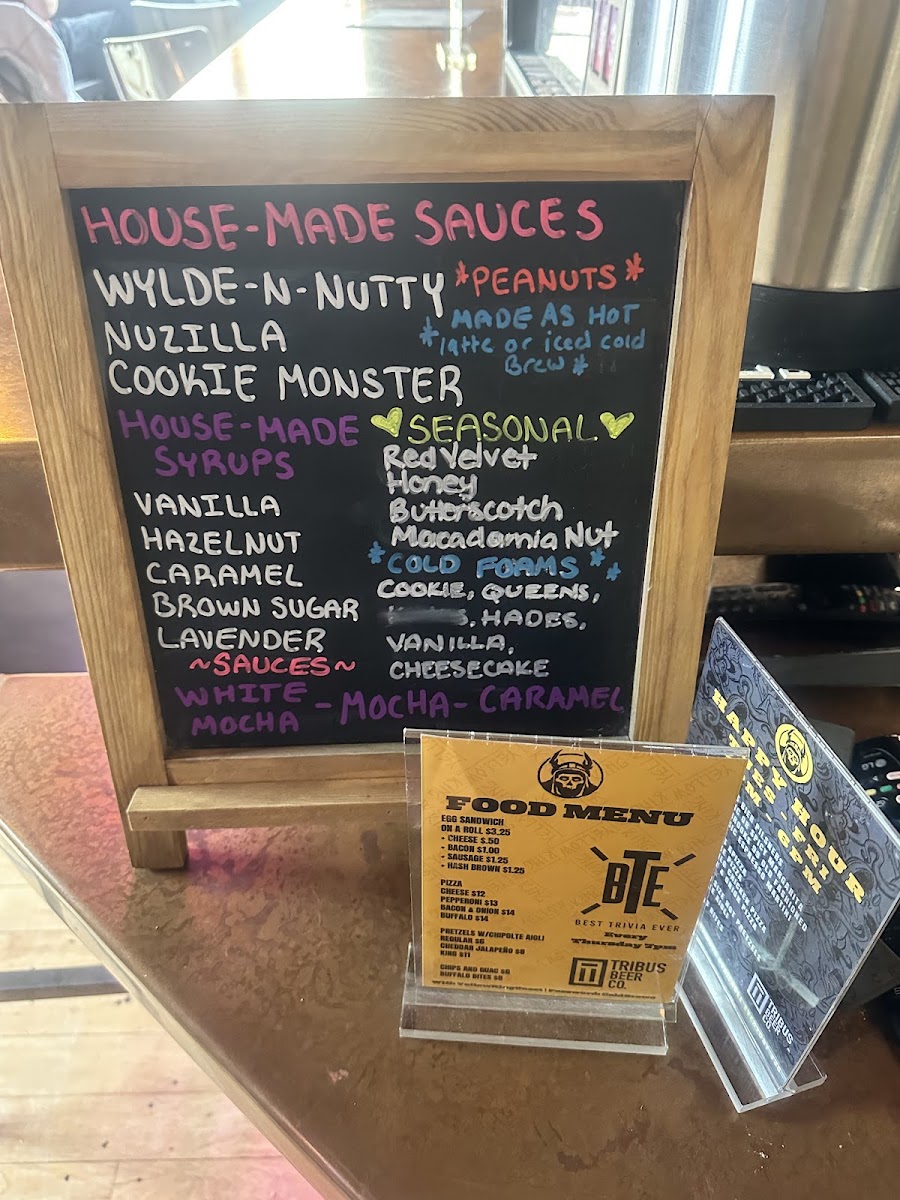 HOUSE-MADE SAUCES
WYLDE-N-NUTTY *PEANUTS*
NUZILLA
COOKIE MONSTER
* MADE AS HOT
latte or iced cold
Brew *
HOUSE-MADE
SYRUPS
VANILLA
HAZELNUT
CARAMEL
BROWN SUGAR
LAVENDER
SEASONAL
Red Velvet
Honey
Butterscotch
Macadamia Nut
* COLD FOAMS **
COOKIE, QUEENS,
, HADES,
VANILLA,
CHEESECAKE
~SAUCES~
WHITE
MOCHA - MOCHA - CARAMEL
FOOD MENU
EGG SANDWICH
ON A ROLL $3.25
- CHEESE $.50
- BACON $1.00
- SAUSAGE $1.25
- HASH BROWN $1.25
PIZZA
CHEESE $12
PEPPERONI $13
BACON & ONION $14
BUFFALO $14
PRETZELS W/CHIPOLTE AIOLI
REGULAR $6
CHEDDAR JALAPEÑO $8
KING $11
CHIPS AND GUAC $6
BUFFALO BITES $8
BTE
BEST TRIVIA EVER
Every
Thursday 7pm
TRIBUS
BEER
CO.
HAPPY HOUR
TRIBUS
BEER
CO.
LG